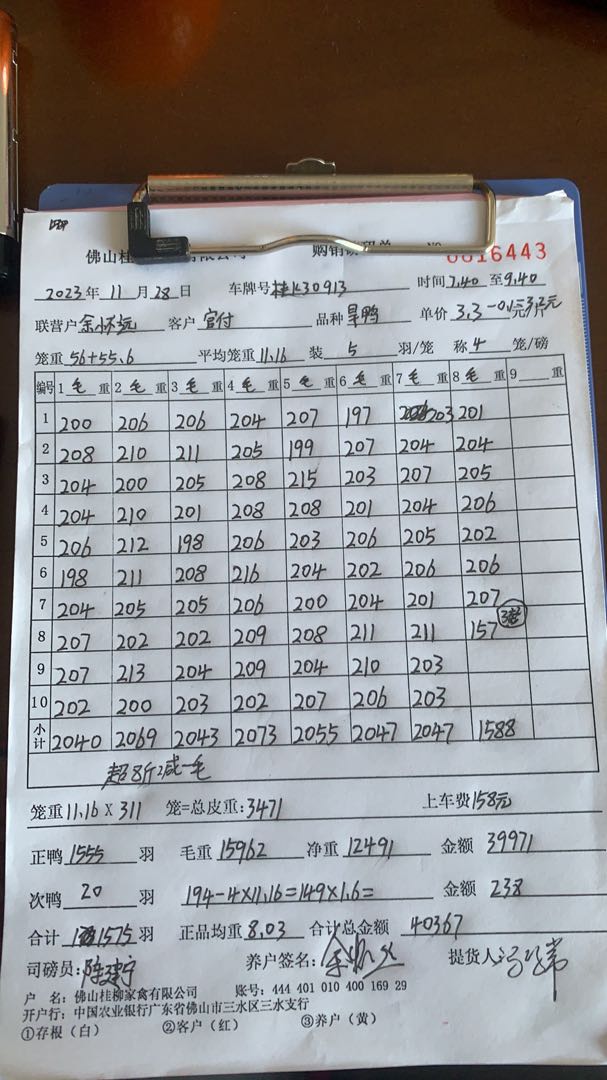 佛山桂 有限公司 购销 单 №0016443
2023年 11月 28日 车牌号 桂K30913 时间 7.40 至 9.40
联营户 客户 官付 品种 旱鸭 单价 3.3
笼重 56+55.6 平均笼重 11.16 装 5 羽/笼 称 4 笼/磅
编号 1 毛 重 2 毛 重 3 毛 重 4 毛 重 5 毛 重 6 毛 重 7 毛 重 8 毛 重 9 重
1 200 206 206 204 207 197 203 201
2 208 210 211 205 199 207 204 204
3 204 200 205 208 215 203 207 205
4 204 210 201 208 208 201 204 206
5 206 212 198 206 203 206 205 202
6 198 211 208 216 204 202 206 206
7 204 205 205 206 200 204 201 207
8 207 202 202 209 208 211 211 157 3笼
9 207 213 204 209 204 210 203
10 202 200 203 202 207 206 203
小计 2040 2069 2043 2073 2055 2047 2047 1588
超8斤减一毛
笼重 11.16 X 311 笼=总皮重: 3471 上车费 158元
正鸭 1555 羽 毛重 15962 净重 12491 金额 39971
次鸭 20 羽 194-4×11.16=149×1.6= 金额 238
合计 1575 羽 正品均重 8.03 合计总金额 40367
司磅员: 陈建宁 养户签名: 提货人:
户 名: 佛山桂柳家禽有限公司 账号: 444 401 010 400 169 29
开户行: 中国农业银行广东省佛山市三水区三水支行
①存根(白) ②客户(红) ③养户(黄)